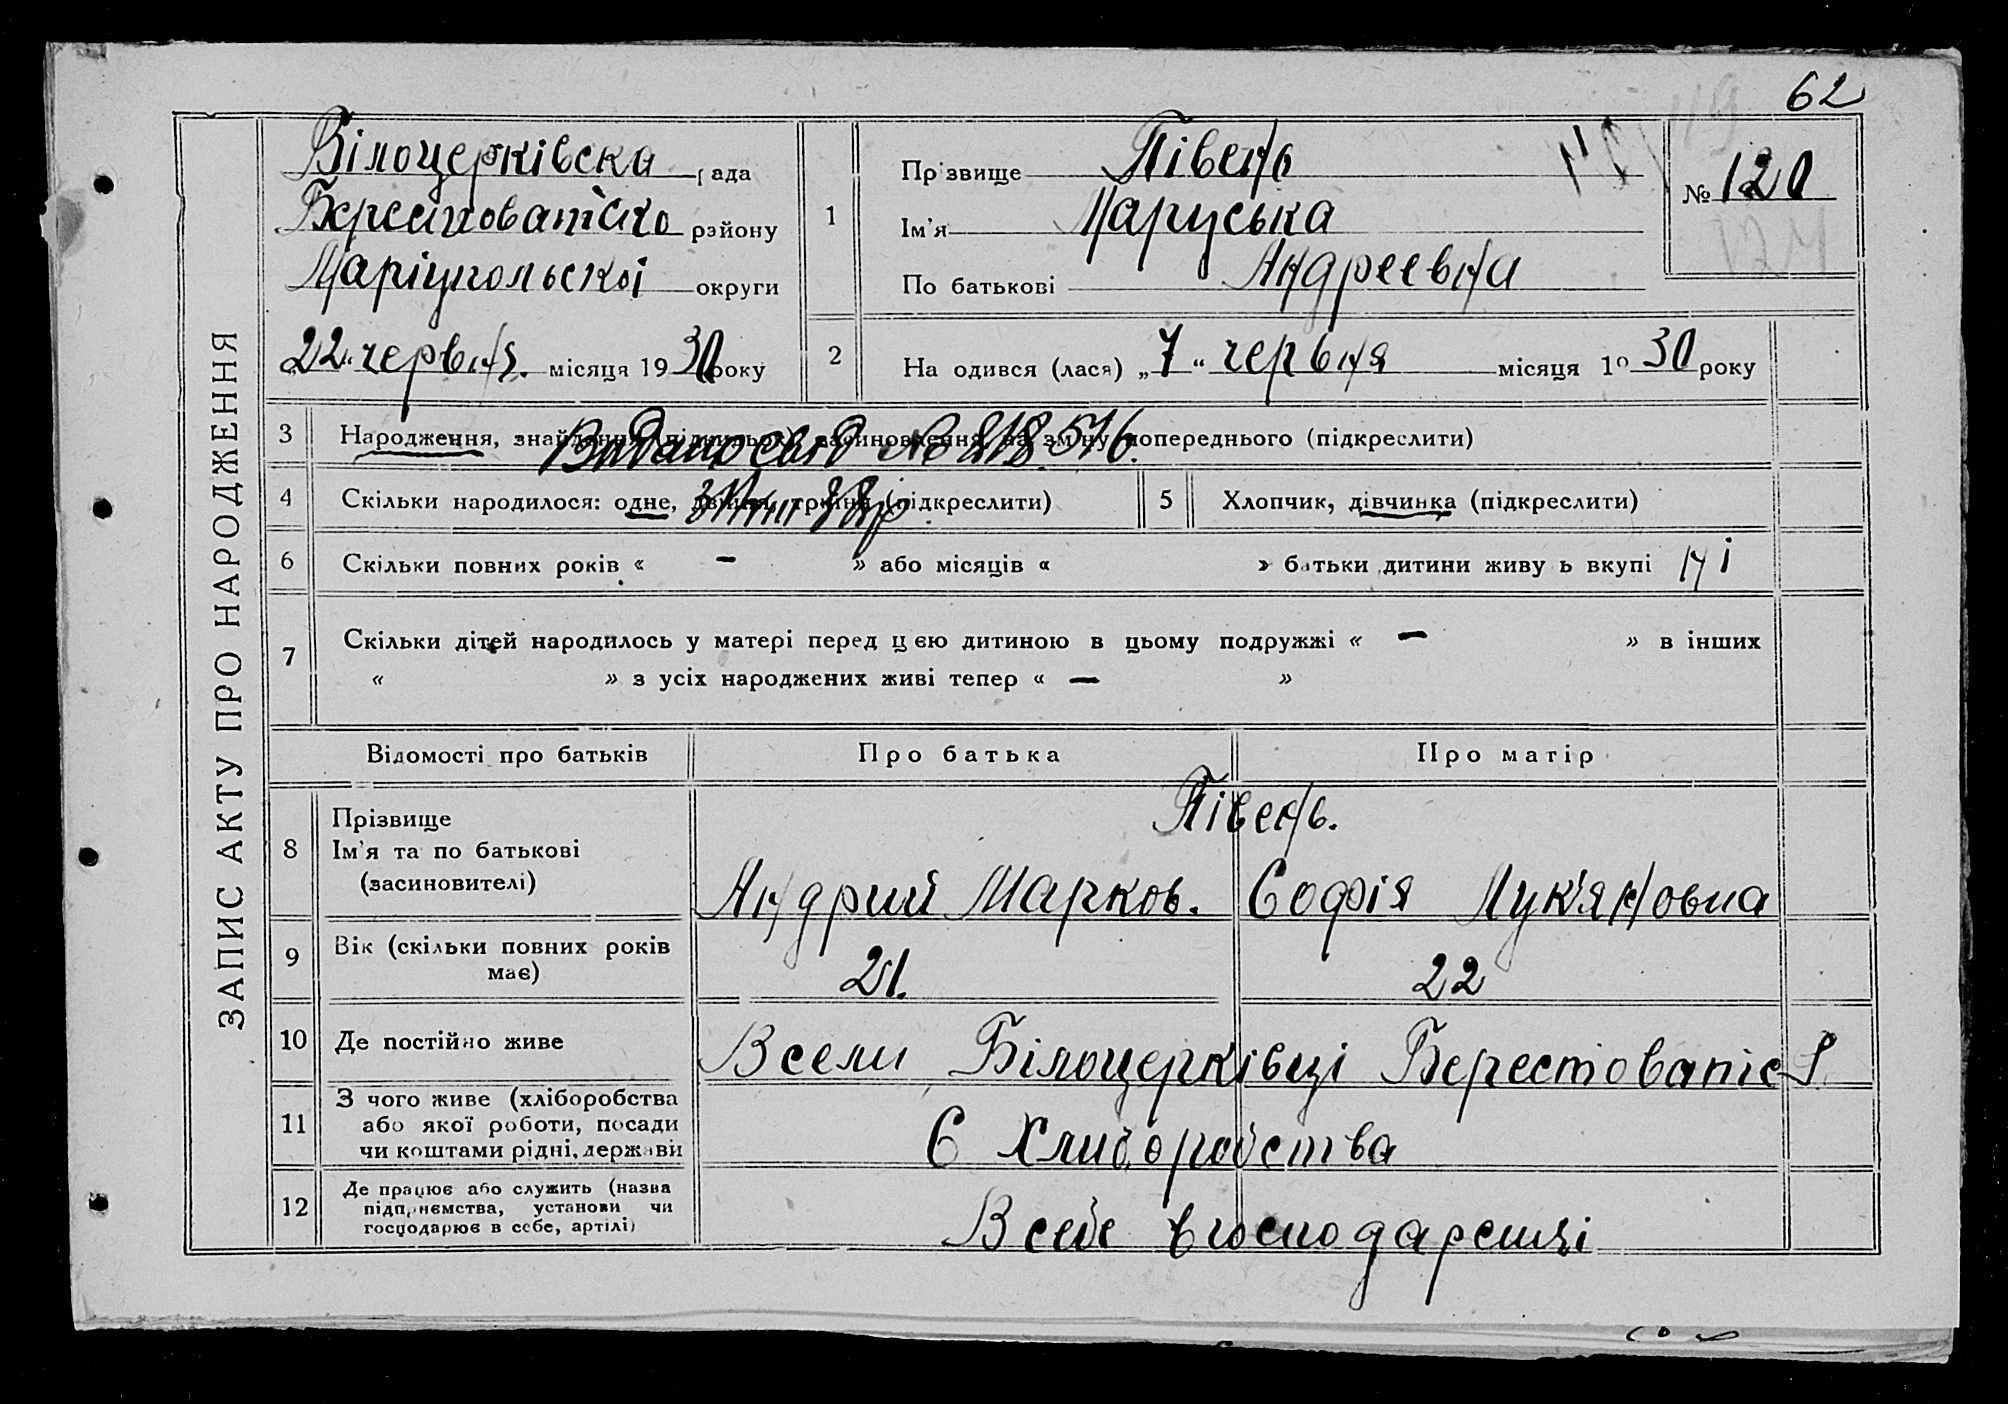 62
ЗАПИС АКТУ ПРО НАРОДЖЕННЯ
Білоцерківска рада
району
Маріупольскої округи
„22“ червня. місяця 1930 року
1
Прізвище Півень
Ім'я Маруська
По батькові Андреевна
№ 120
2 На одився (лася) „7“ червня місяця 1930 року
3 Народження, знайдення, (підкреслити)
Видано свід № 218516.
4 Скільки народилося: одне, двійня, тройня (підкреслити)
5 Хлопчик, дівчинка (підкреслити)
6 Скільки повних років « – » або місяців « » батьки дитини живу ь вкупі
7 Скільки дітей народилось у матері перед цією дитиною в цьому подружжі « – » в інших
« » з усіх народжених живі тепер « – »
Відомості про батьків Про батька Про матір
8 Прізвище
Ім'я та по батькові
(засиновителі)
Півень.
Андрий Марков. Софія Лук'яновна
9 Вік (скільки повних років
має)
21. 22
10 Де постійно живе
В сели Білоцерківці
11 З чого живе (хліборобства
або якої роботи, посади
чи коштами рідні, держави
Є Хлиборобства
12 Де працює або служить (назва
підприємства, установи чи
господарює в себе, артілі)
В себе в господарстві